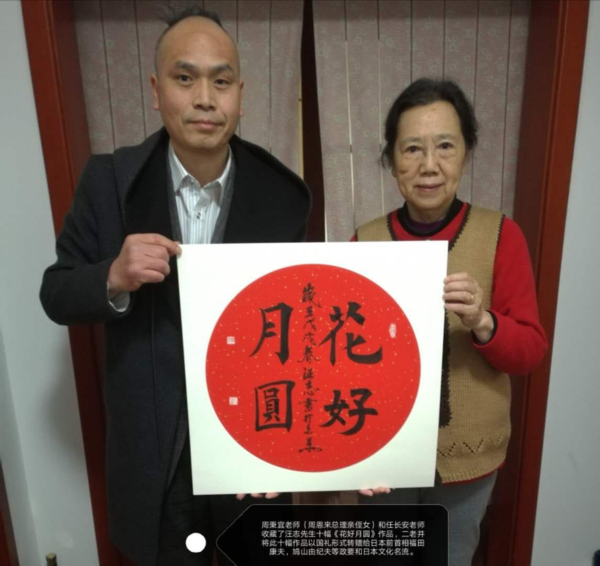 花好
歲戊戌春汪志書於
月圓
周秉宜老师（周恩来总理亲侄女）和任长安老师
收藏了汪志先生十幅《花好月圆》作品，二老并
将此十幅作品以国礼形式转赠给日本前首相福田
康夫，鸠山由纪夫等政要和日本文化名流。